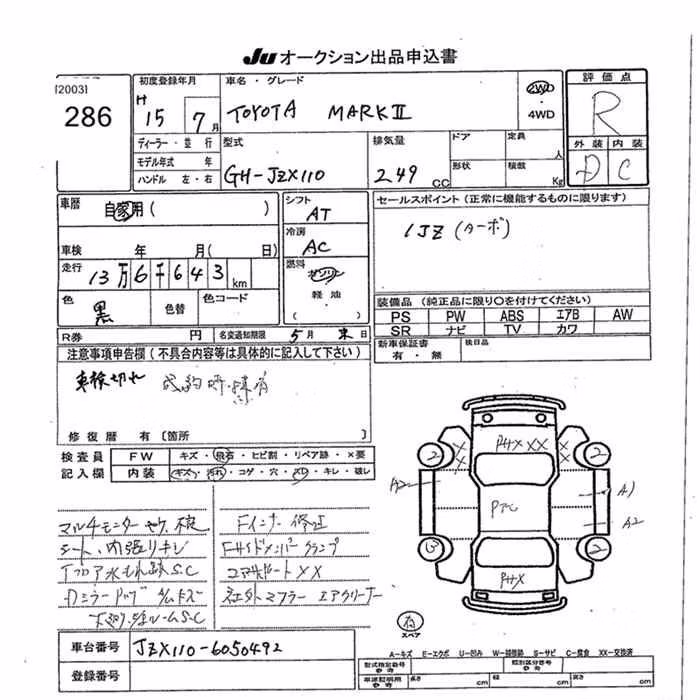 Ju オークション出品申込書
[2003]
286
初度登録年月
H 15 7月
車名・グレード
TOYOTA MARKⅡ
2WD
・
4WD
評価点
R
外装 内装
D C
ディーラー・並行
モデル年式 年
ハンドル 左・右
型式
GH-JZX110
排気量
249 CC
ドア
形状
定員 人
積載 Kg
車歴
自家用( )
シフト
AT
セールスポイント(正常に機能するものに限ります)
1JZ (ターボ)
冷房
AC
車検 年 月( 日)
走行
13万6千643km
燃料
ガソリン
・
軽油
・
( )
色
黒
色替
色コード
装備品(純正品に限り○を付けてください)
PS PW ABS エアB AW
SR ナビ TV カワ
R券 円
名変通知期限 5月末日
新車保証書
有・無
後日品
注意事項申告欄(不具合内容等は具体的に記入して下さい)
車検切れ
修復歴 有[箇所 ]
検査員
記入欄
FW
キズ・飛石・ヒビ割・リペア跡・×要
内装
キズ・汚れ・コゲ・穴・スレ・キレ・破レ
シート、内張りキレ
フロア水もれ跡S.C
Fインナー修正
Fサイドメンバークランプ
コアサポートXX
社外マフラー エアクリーナー
P4X XX
X X
X X
2
2
2
2
A2
A1
A2
P7C
P4X
有
スペア
車台番号
JZX110-6050492
登録番号
A−キズ E−エクボ U−凹み W−補修跡 S−サビ C−腐食 XX−交換済
型式指定番号
参考
類別区分番号
参考
車検証明用
参考
長さ cm
幅 cm
高さ cm